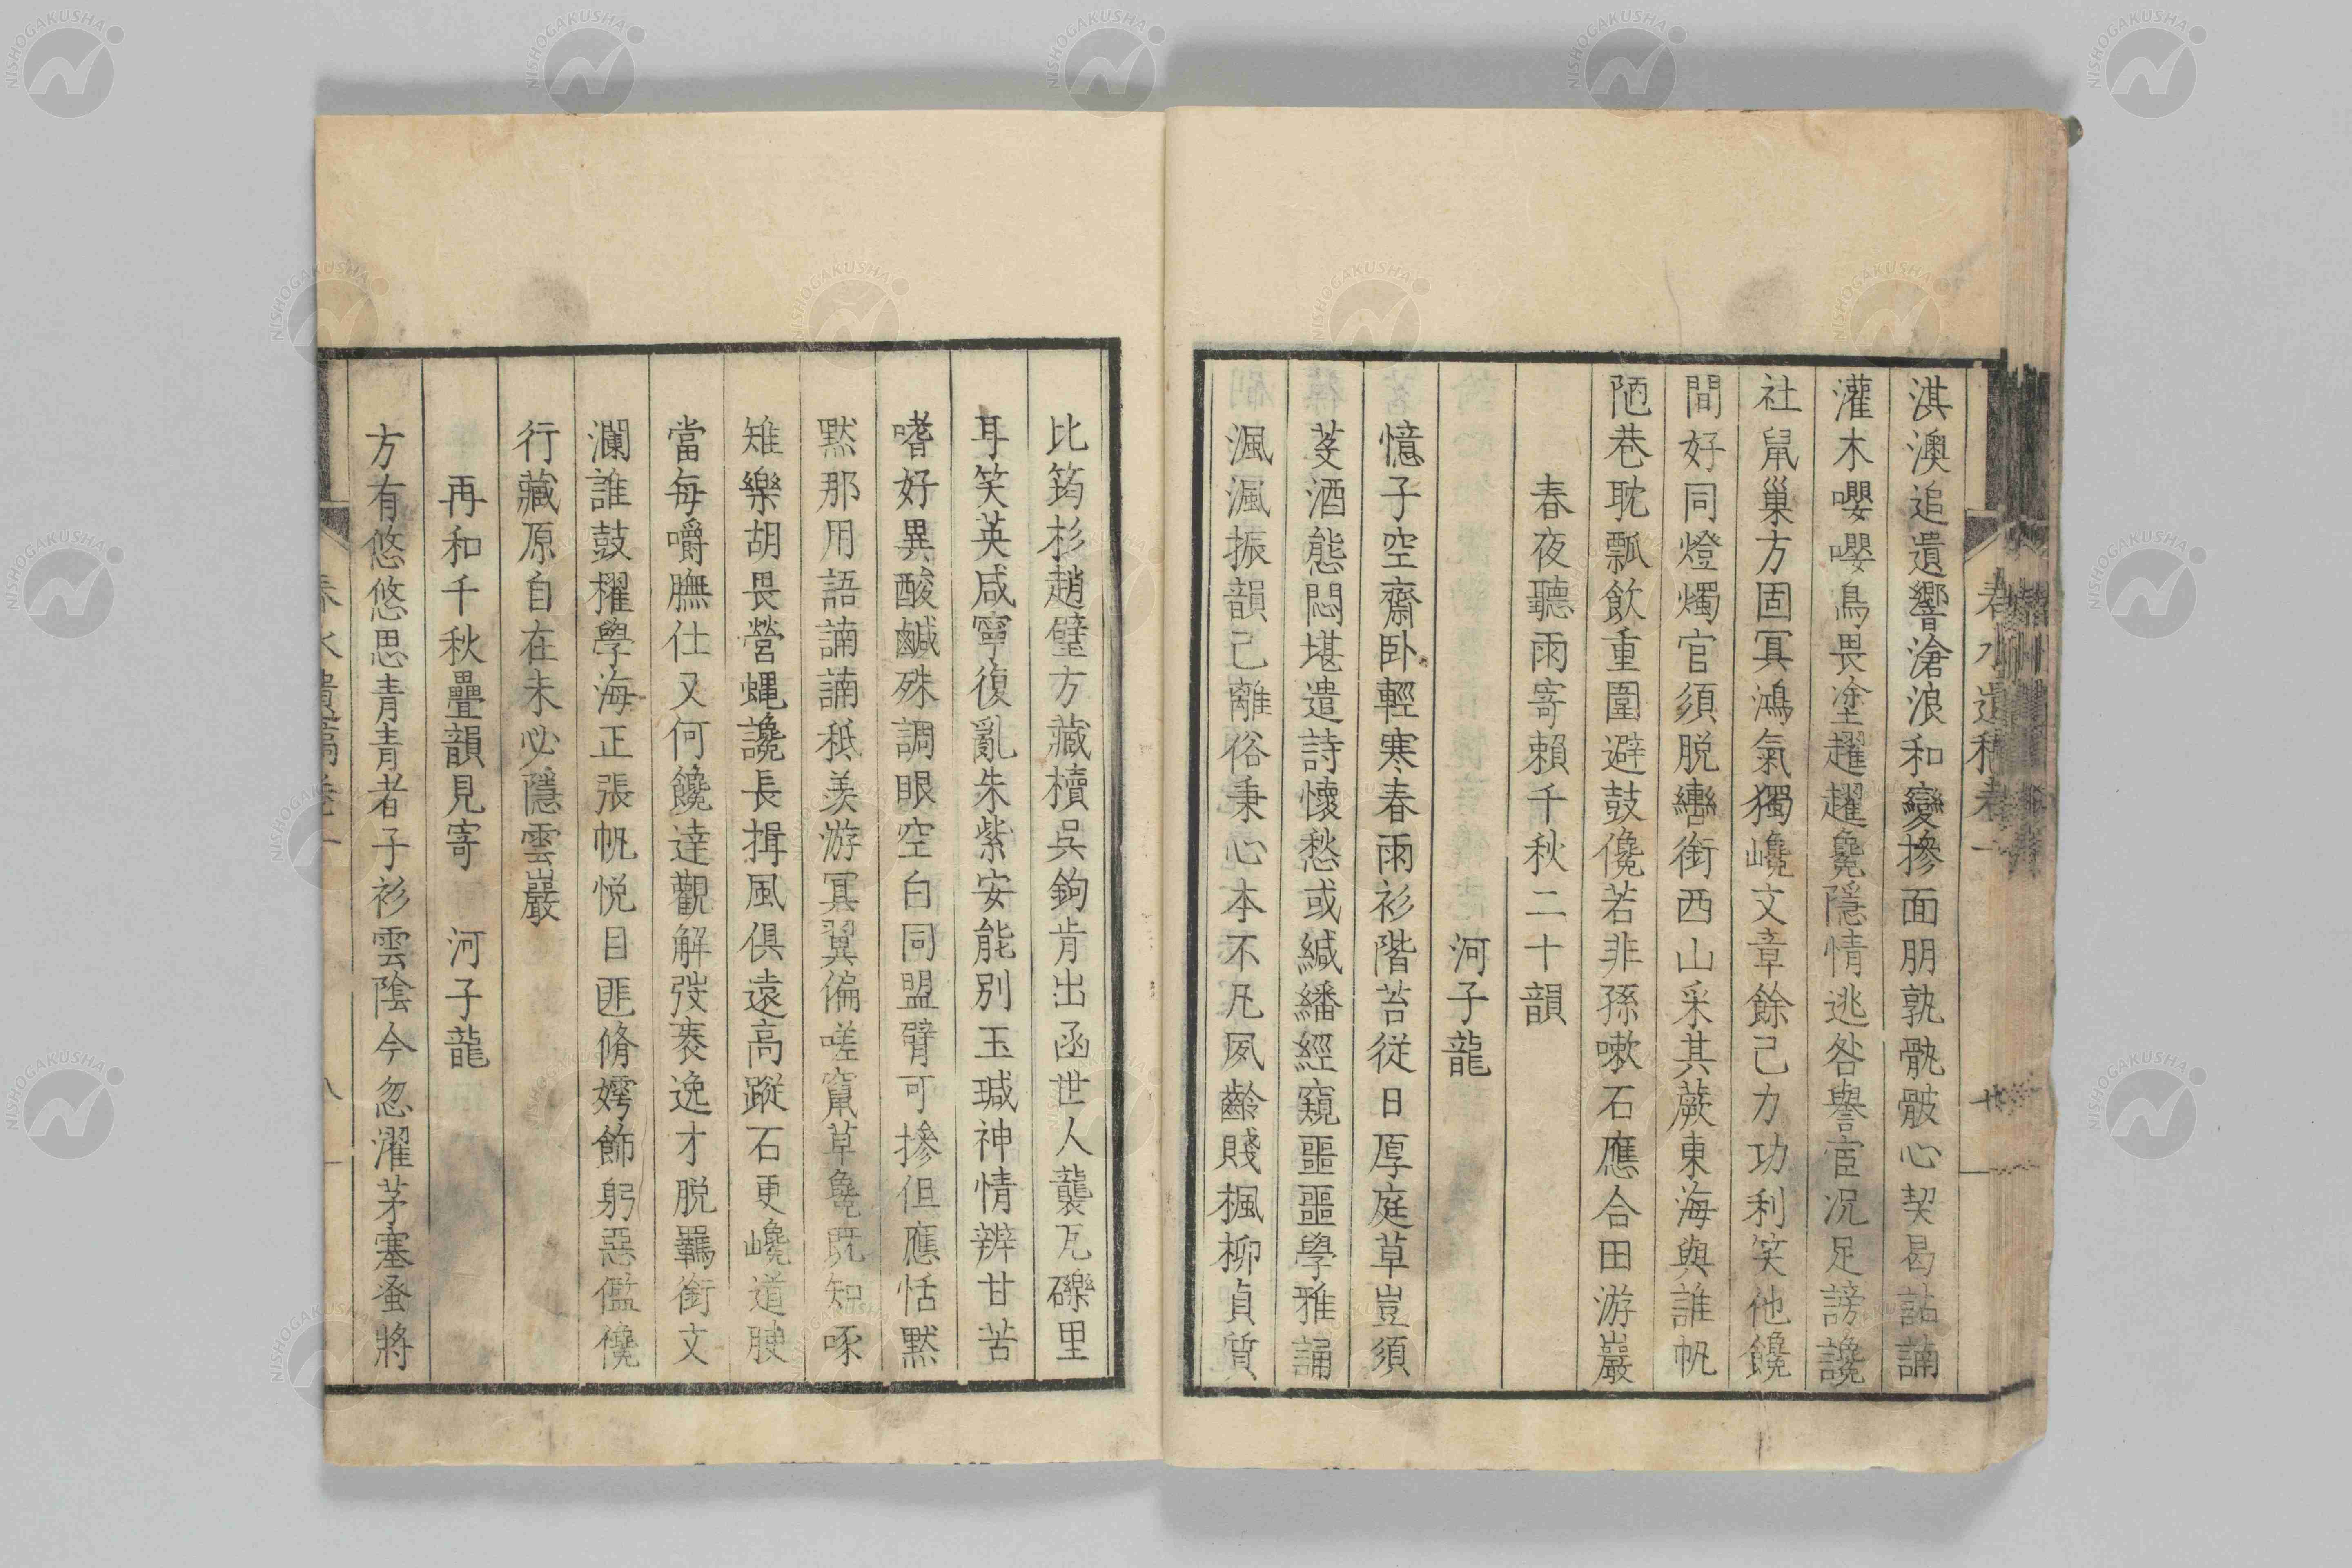 淇澳追遺響滄浪和變摻面朋孰骩骳心契曷詀諵
灌木嚶嚶鳥畏塗趯趯毚隱情逃咎譽宦况足謗讒
社鼠巢方固冥鴻氣獨巉文章餘己力功利笑他饞
間好同燈燭官須脱轡銜西山采其蕨東海與誰帆
陋巷耽瓢飲重圍避鼓儳若非孫嗽石應合田游巖
春夜聽雨寄賴千秋二十韻
河子龍
憶子空齋卧輕寒春雨衫階苔従日厚庭草豈須
芟酒態悶堪遣詩懷愁或緘繙經窺噩噩學雅誦
渢渢振韻已離俗秉心本不凡夙齡賤楓柳貞質
比筠杉趙璧方藏櫝吳鉤肯出函世人襲瓦礫里
耳笑英咸寧復亂朱紫安能別玉瑊神情辨甘苦
嗜好異酸鹹殊調眼空白同盟臂可摻但應恬黙
黙那用語諵諵秖羡游冥翼偏嗟竄草毚既知啄
雉樂胡畏營蝿讒長揖風俱遠高蹤石更巉道腴
當每嚼膴仕又何饞達觀解弢袠逸才脱羈銜文
瀾誰鼓櫂學海正張帆悦目匪脩嫮飾躬惡儖儳
行藏原自在未必隱雲巖
再和千秋疊韻見寄　河子龍
方有悠悠思青青者子衫雲陰今忽濯茅塞蚤將
春水遺稿卷一